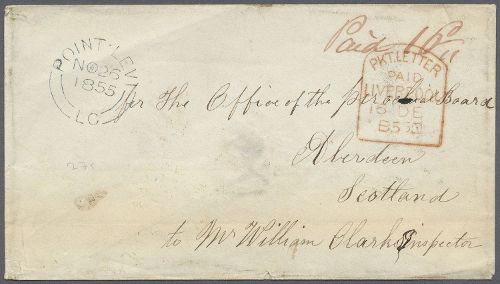 POINT LEVI
NO 26
1855
L.C
Paid
PKT. LETTER
PAID
LIVERPOOL
15 DE
1855
For The Office of the Board
Aberdeen
Scotland
to Mr William Clark Inspector